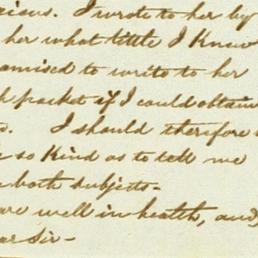 cious. I wrote to her by
her what little I Know
omised to write to her
h packet if I could obtain
I should therefore
so Kind as to tell me
both subjects-
are well in health, and,
ar Sir-